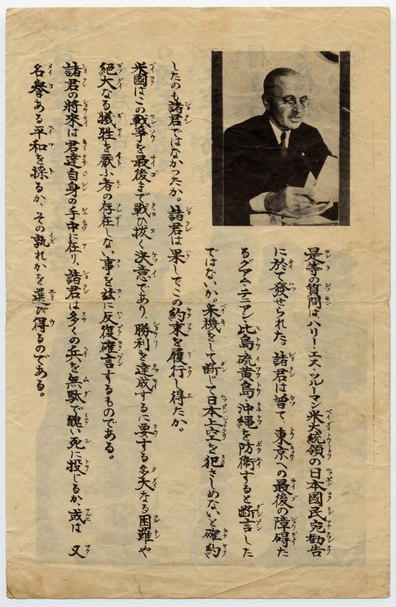 是等の質問は、ハリー・エス・ツルーマン米大統領の日本國民宛勸告
に於て發せられた。諸君は曾て、東京への最後の障碍た
るグアム・テニアン、比島、硫黄島、沖縄を防衛すると断言した
ではないか。米機をして断じて日本上空を犯さしめないと確約
したのも諸君ではなかつたか。諸君は果してこの約束を履行し得たか。
米國はこの戦争を最後まで戦ひ抜く決意であり、勝利を達成するに要する多大なる困難や
絶大なる犠牲を厭ふ者の存在しない事を茲に反復確言するものである。
諸君の將來は君達自身の手中に在り、諸君は多くの兵を無駄で醜い死に投じるか、或は又
名譽ある平和を採るか、その孰れかを選び得るのである。